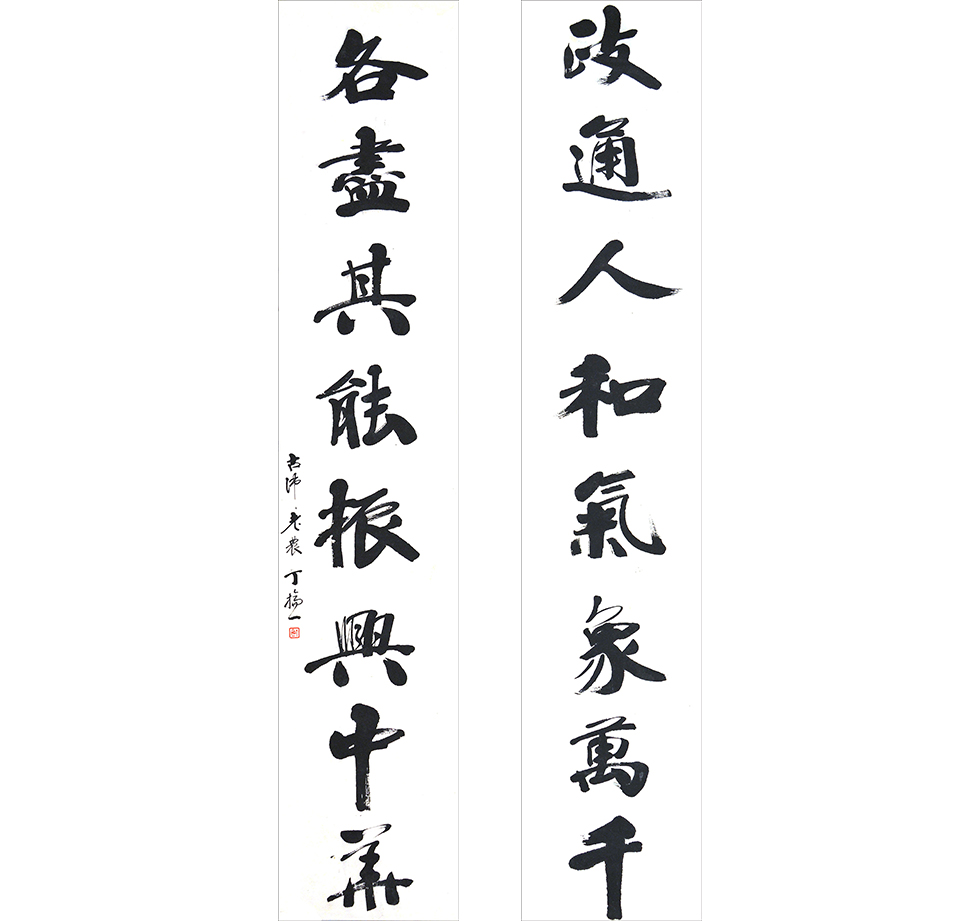 政通人和氣象萬千
各盡其能振興中華
老農 丁